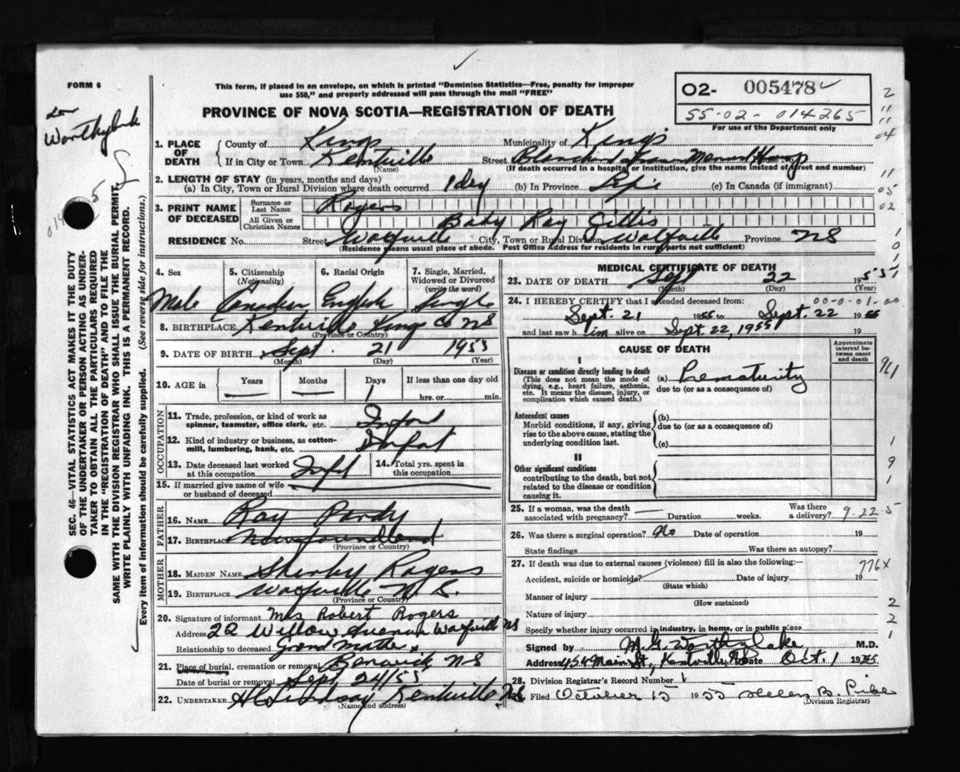 FORM 6
This form, if placed in an envelope, on which is printed "Dominion Statistics—Free, penalty for improper
use $50," and properly addressed will pass through the mail "FREE"
02- 005478
55-02-014265
For use of the Department only
PROVINCE OF NOVA SCOTIA—REGISTRATION OF DEATH
1. PLACE OF DEATH
County of Kings Municipality of Kings
If in City or Town Kentville Street Blanchard Fraser Memorial Hosp
(Name) (If death occurred in a hospital or institution, give the name instead of street and number)
2. LENGTH OF STAY (in years, months and days)
(a) In City, Town or Rural Division where death occurred 1 day (b) In Province (c) In Canada (if immigrant)
3. PRINT NAME OF DECEASED
Surname or Last Name Rogers
All Given or Christian Names Baby Ray Gillis
RESIDENCE No. Street Wolfville City, Town or Rural Division Wolfville Province NS
(Residence means usual place of abode. Post Office Address for residents in rural parts not sufficient)
4. Sex Male
5. Citizenship (Nationality) Canadian
6. Racial Origin English
7. Single, Married, Widowed or Divorced (write the word) Single
8. BIRTHPLACE Kentville Kings Co NS
9. DATE OF BIRTH Sept. 21 1955
(Month) (Day) (Year)
10. AGE in Years Months Days 1 If less than one day old hrs. or min.
OCCUPATION
11. Trade, profession, or kind of work as spinner, teamster, office clerk, etc. Infant
12. Kind of industry or business, as cotton-mill, lumbering, bank, etc. Infant
13. Date deceased last worked at this occupation Infant 14. Total yrs. spent in this occupation
15. If married give name of wife or husband of deceased
FATHER
16. NAME Ray Pardy
17. BIRTHPLACE Newfoundland
(Province or Country)
MOTHER
18. MAIDEN NAME Shirley Rogers
19. BIRTHPLACE Wolfville N.S.
(Province or Country)
20. Signature of informant Mrs Robert Rogers
Address 22 Willow Avenue Wolfville NS
Relationship to deceased Grand Mother
21. Place of burial, cremation or removal Berwick NS
Date of burial or removal Sept 24/55
22. UNDERTAKER Kentville NS
(Name and address)
MEDICAL CERTIFICATE OF DEATH
23. DATE OF DEATH Sept 22 1955
(Month) (Day) (Year)
00-0-01-00
24. I HEREBY CERTIFY that I attended deceased from
Sept. 21 1955 to Sept. 22 1955
and last saw him alive on Sept. 22, 1955 19
CAUSE OF DEATH
Approximate interval between onset and death
I
Disease or condition directly leading to death
(This does not mean the mode of dying, e.g., heart failure, asthenia, etc. It means the disease, injury, or complication which caused death.)
(a) Prematurity
due to (or as a consequence of)
Antecedent causes
Morbid conditions, if any, giving rise to the above cause, stating the underlying condition last.
(b)
due to (or as a consequence of)
(c)
II
Other significant conditions
contributing to the death, but not related to the disease or condition causing it.
25. If a woman, was the death associated with pregnancy? Duration weeks. Was there a delivery? 9-22-5
26. Was there a surgical operation? No Date of operation 19
State findings Was there an autopsy?
27. If death was due to external causes (violence) fill in also the following:—
Accident, suicide or homicide? Date of injury 19
(State which)
776X
Manner of injury
(How sustained)
Nature of injury
Specify whether injury occurred in industry, in home, or in public place
Signed by M.G. Worthylake M.D.
Address 454 Main St, Kentville NS Date Oct. 1 1955
28. Division Registrar's Record Number 1
Filed October 15 1955 Helen B.
(Division Registrar)
Worthylake
SEC. 46—VITAL STATISTICS ACT MAKES IT THE DUTY
OF THE UNDERTAKER OR PERSON ACTING AS UNDER-
TAKER TO OBTAIN ALL THE PARTICULARS REQUIRED
IN THE "REGISTRATION OF DEATH" AND TO FILE THE
SAME WITH THE DIVISION REGISTRAR WHO SHALL ISSUE THE BURIAL PERMIT
WRITE PLAINLY WITH UNFADING INK. THIS IS A PERMANENT RECORD.
Every item of information should be carefully supplied. (See reverse side for instructions.)